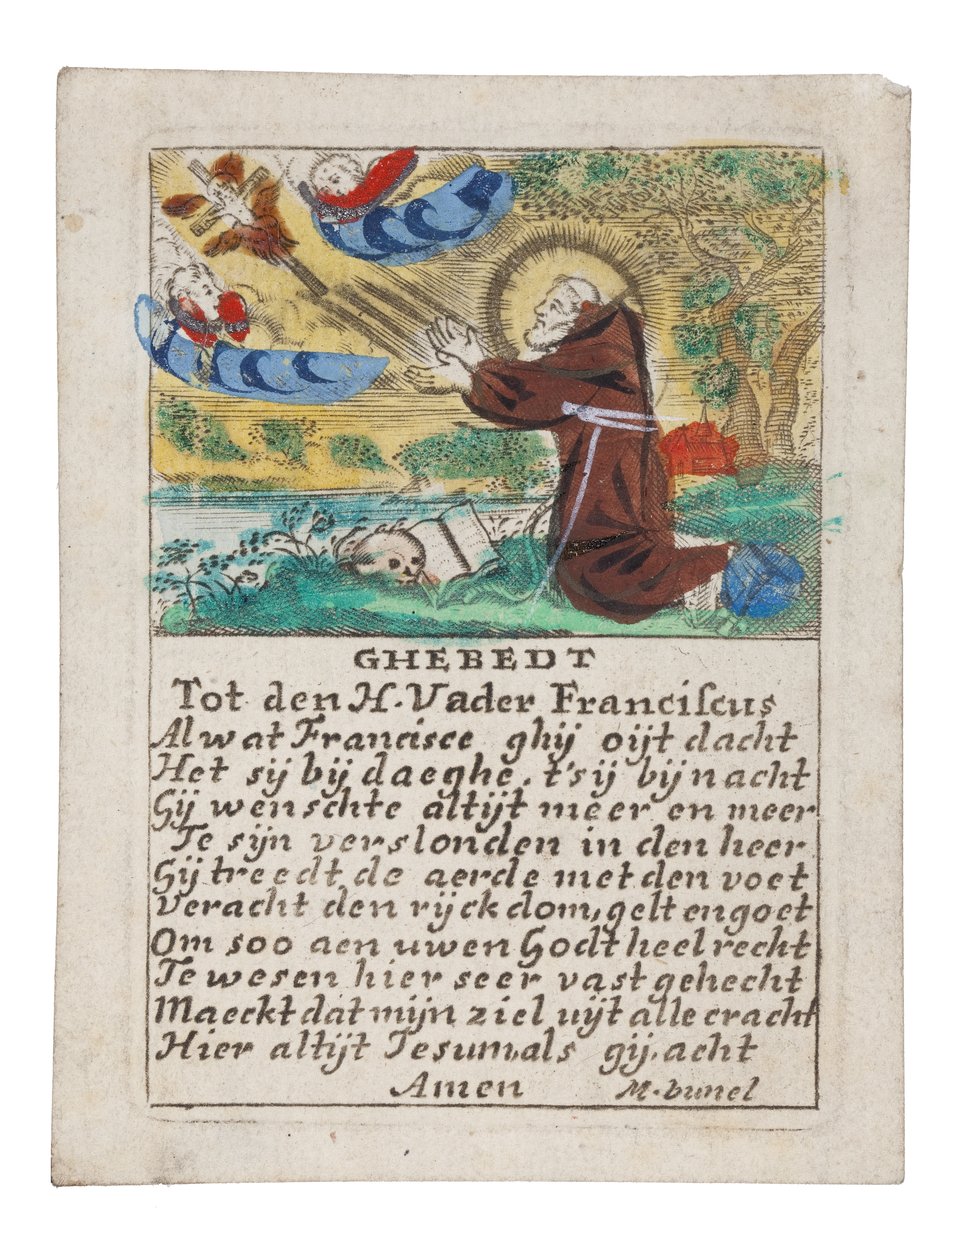 GHEBEDT
Tot den H. Vader Franciſcus
Al wat Francisce ghij oijt dacht
Het sij bij daeghe, t'sij bij nacht
Gij wenschte altijt meer en meer
Te sijn verslonden in den heer
Gij treedt de aerde met den voet
Veracht den rijckdom, gelt en goet
Om soo aen uwen Godt heel recht
Te wesen hier seer vast gehecht
Maeckt dat mijn ziel uijt alle cracht
Hier altijt Jesum, als gij, acht
Amen M. bunel